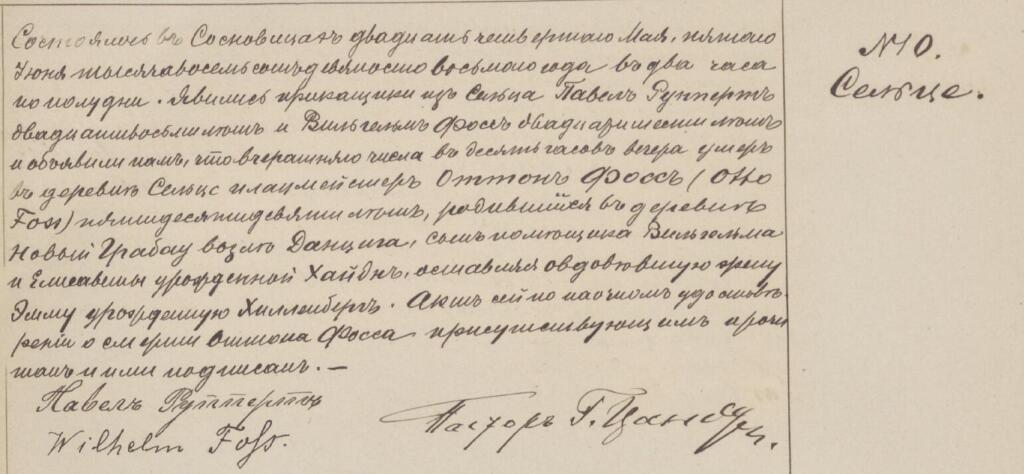 Состоялось въ Сосновицахъ двадцать четвертаго Мая, пятаго
Іюня тысяча восемь сотъ девяносто восьмого года въ два часа
по полудни. Явились прикащики изъ Сельца Павелъ Руппертъ
двадцативосьми лѣтъ и Вильгельмъ Фоссъ двадцатишести лѣтъ
и объявили намъ, что вчерашняго числа въ десять часовъ вечера умеръ
въ деревнѣ Сельце плацмейстеръ Оттонъ Фоссъ (Otto
Foss) пятидесятидевяти лѣтъ, родившійся въ деревнѣ
Новый Грабау возлѣ Данцига, сынъ помѣщика Вильгельма
и Елисаветы урожденной Хайднъ, оставляя овдовѣвшую жену
Эмму урожденную Хилленбергъ. Актъ сей по наочномъ удостовѣ-
реніи о смерти Оттона Фосса присутствующимъ прочи
танъ и ими подписанъ. —
Павелъ Руппертъ
Wilhelm Foss.
Пасторъ Г.
№10.
Сельце.